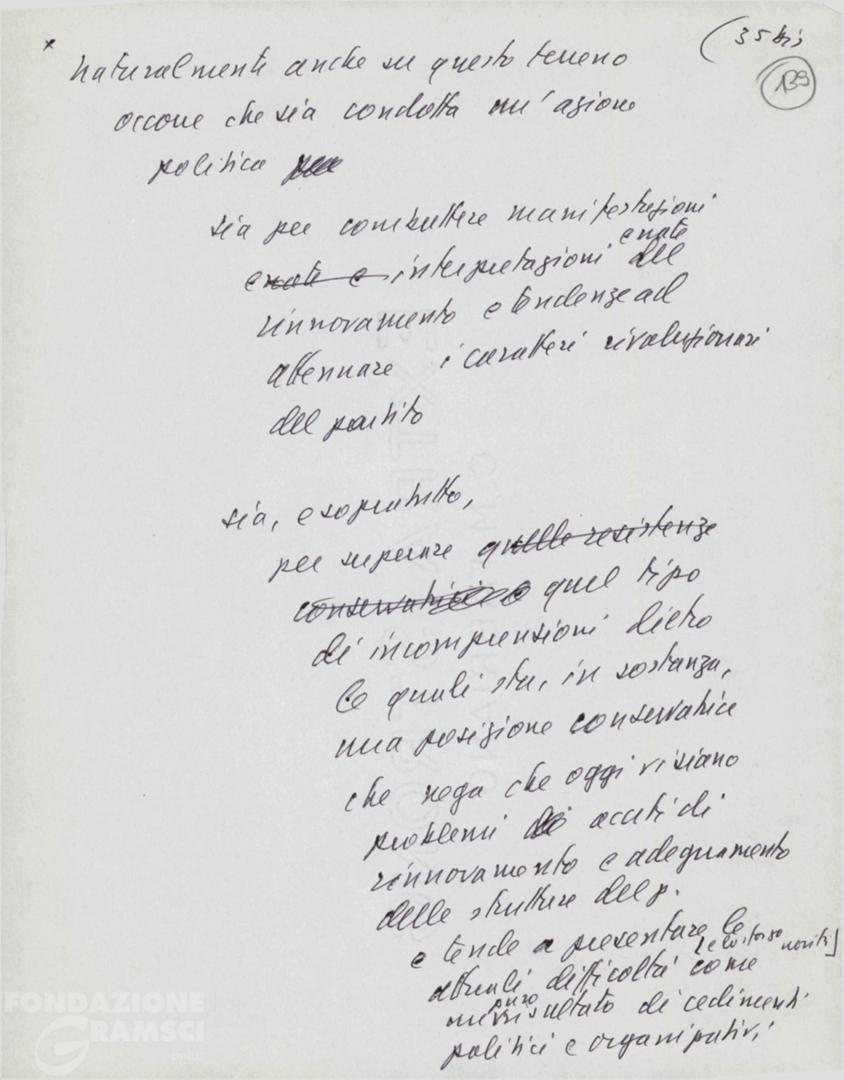 x
(35 bis
139
Naturalmente anche su questo terreno
occorre che sia condotta un'azione
politica
sia per combattere manifestazioni
errate e interpretazioni errate del
rinnovamento e tendenze ad
attenuare i caratteri rivoluzionari
del partito
sia, e sopratutto,
per superare quelle resistenze
conservatrici e quel tipo
di incomprensioni dietro
le quali sta, in sostanza,
una posizione conservatrice
che nega che oggi vi siano
problemi acuti di
rinnovamento e adeguamento
delle strutture del p.
e tende a presentare le
attuali difficoltà [e lo stesso novità] come
puro risultato di cedimenti
politici e organizzativi
FONDAZIONE
GRAMSCI